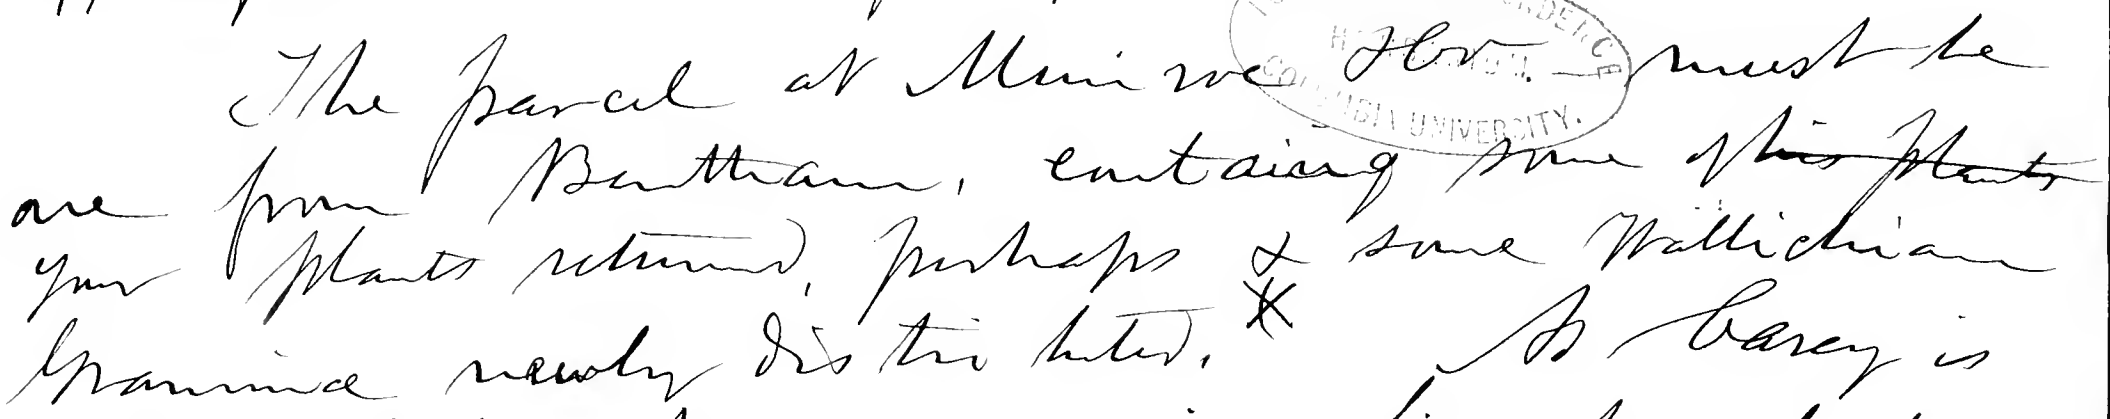 The parcel at Munroe must be
one from Bentham, containg some of his plants
your plants returned, perhaps & some Wallichian
Graminae newly distributed. X As Carey is
COLUMBIA UNIVERSITY.